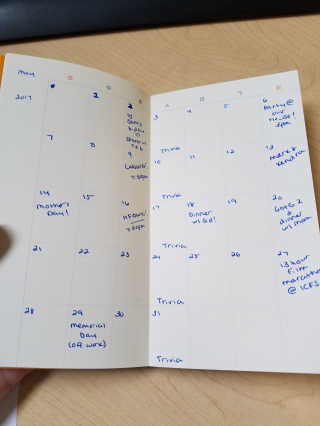 May
2017
1
2
3
Trivia
4
5
6
Party @
our
house!
7
8
9
10
Trivia
11
12
13
Mark &
Kendra
14
Mother's
Day!
15
16
17
Trivia
18
Dinner
19
20
GotG 2
&
dinner
w/ mom
21
22
23
24
Trivia
25
26
27
13 hour
film
marathon
@ ICFS
28
29
Memorial
Day
(off work)
30
31
Trivia